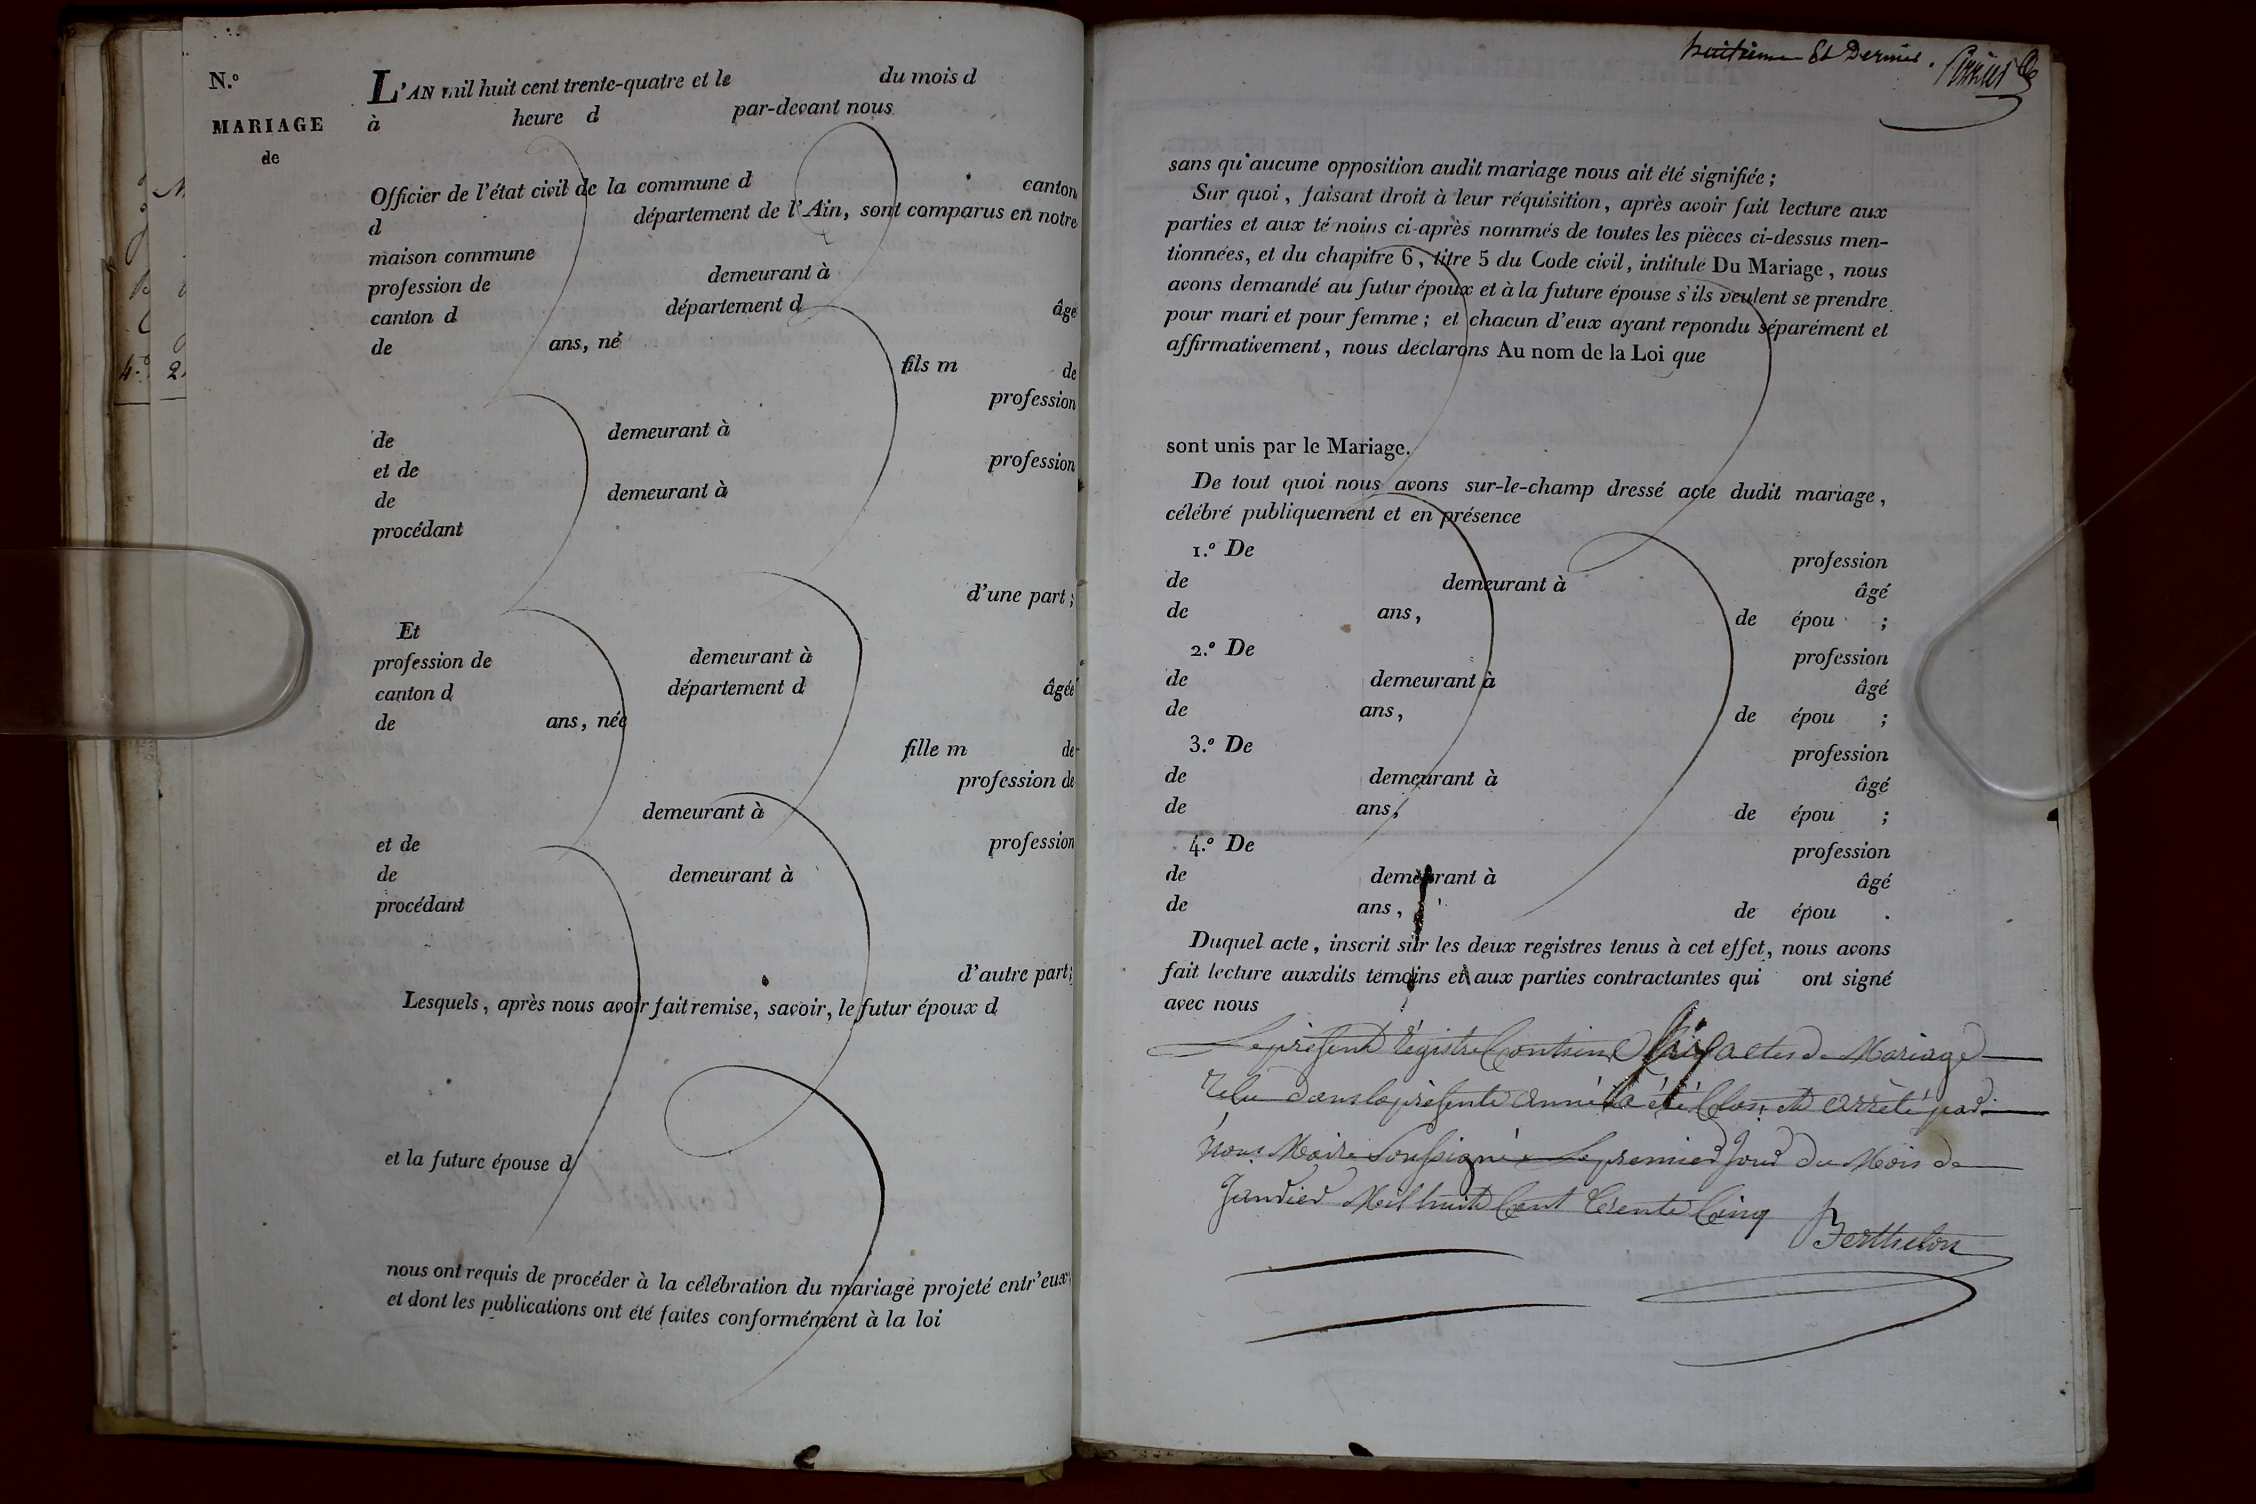 N.º
MARIAGE
de
L'AN mil huit cent trente-quatre et le du mois d
à heure d par-devant nous
Officier de l'état civil de la commune d canton
d département de l'Ain, sont comparus en notre
maison commune
profession de demeurant à
canton d département d âgé
de ans, né
fils m de
profession
de demeurant à
et de profession
de demeurant à
procédant
d'une part ;
Et
profession de demeurant à
canton d département d âgée
de ans, née
fille m de
profession de
demeurant à
et de profession
de demeurant à
procédant
d'autre part ;
Lesquels, après nous avoir fait remise, savoir, le futur époux d
et la future épouse d
nous ont requis de procéder à la célébration du mariage projeté entr'eux
et dont les publications ont été faites conformément à la loi
4.º 2
huitieme Et Dernier.
sans qu'aucune opposition audit mariage nous ait été signifiée ;
Sur quoi, faisant droit à leur réquisition, après avoir fait lecture aux
parties et aux témoins ci-après nommés de toutes les pièces ci-dessus men-
tionnées, et du chapitre 6, titre 5 du Code civil, intitulé Du Mariage, nous
avons demandé au futur époux et à la future épouse s'ils veulent se prendre
pour mari et pour femme ; et chacun d'eux ayant repondu séparément et
affirmativement, nous déclarons Au nom de la Loi que
sont unis par le Mariage.
De tout quoi nous avons sur-le-champ dressé acte dudit mariage,
célébré publiquement et en présence
1.º De profession
de demeurant à âgé
de ans, de épou ;
2.º De profession
de demeurant à âgé
de ans, de épou ;
3.º De profession
de demeurant à âgé
de ans, de épou ;
4.º De profession
de demeurant à âgé
de ans, de épou .
Duquel acte, inscrit sur les deux registres tenus à cet effet, nous avons
fait lecture auxdits témoins et aux parties contractantes qui ont signé
avec nous
Le présent régistre Contient actes de Mariage
dans la présente année a été Clos et arrêté par
nous Maire Soussigné Le premier Jour du Mois de
Janvier Mil huit Cent trente Cinq
Berthelon